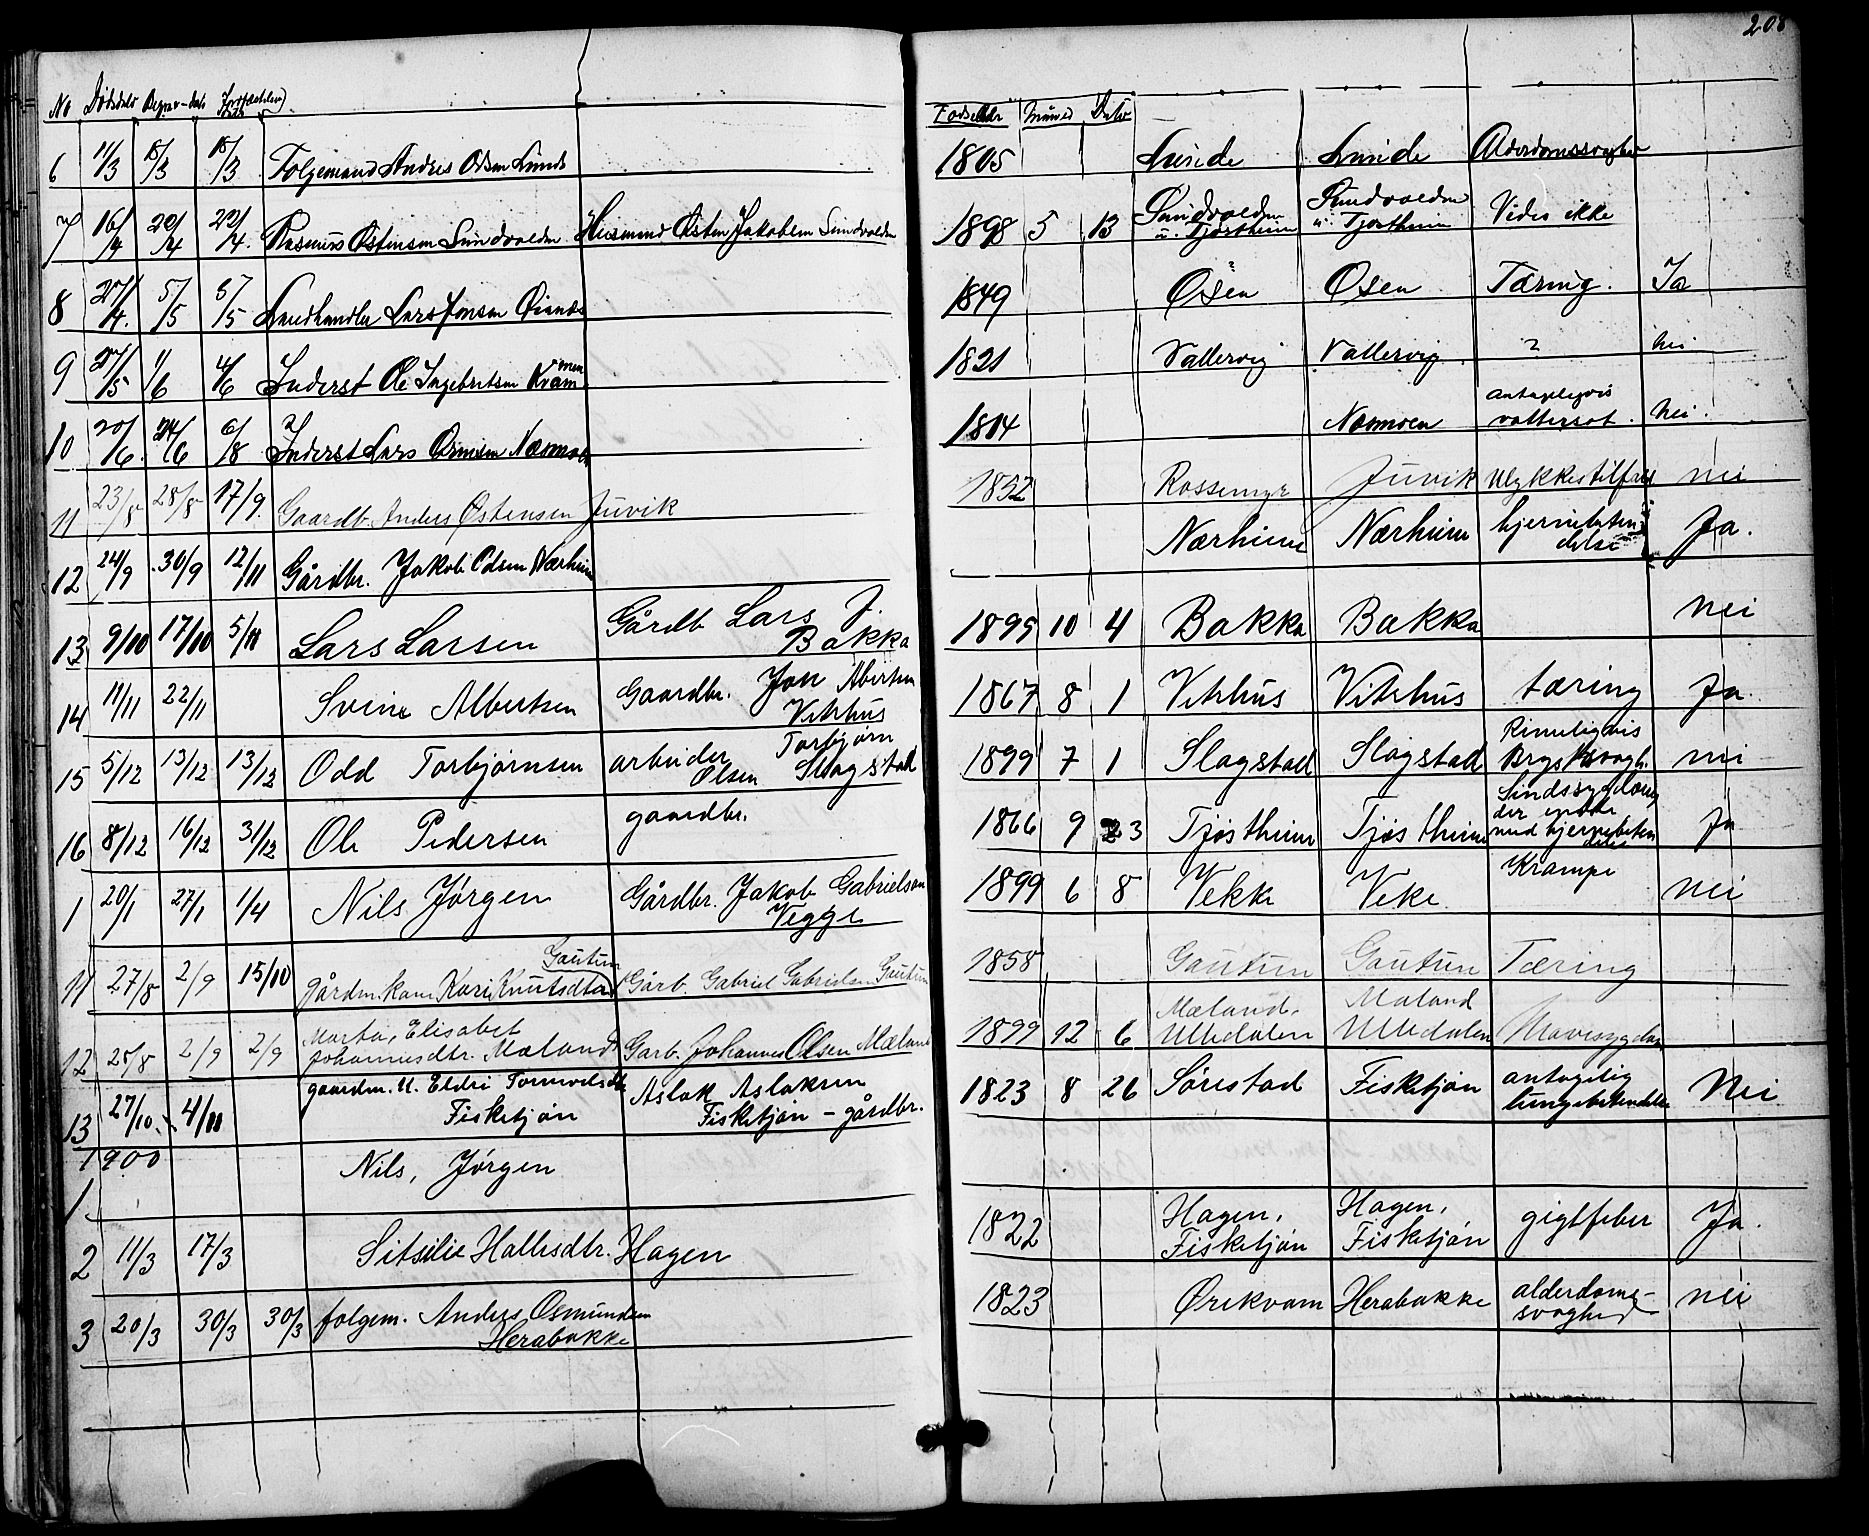 208
No Dødsdato Begrav-dato Jordfæstelse Fødselsår Måned Dato
6 11/3 15/3 15/3 Følgemand Andres Odsen Lunde 1805 Lunde Lunde Alderdomssvaghed
7 16/4 22/4 22/4. Rasmus Østensen Sundvolden Husmand Østen Jakobsen Sundvolden 1898 5 13 Sundvolden u. Tjøstheim Sundvolden u. Tjøstheim Vides ikke
8 27/4. 5/5 5/5 Landhandler Lars Jonsen 1849 Osen Osen Tæring. Ja
9 27/5 1/6 4/6 Inderst Ole Ingebretsen Kvammen 1821 Vallervig Vallervig ? Nei
10 20/6 24/6 6/8 Inderst Lars 1814 Næmoen antageligvis vattersot. Nei.
11 23/8 28/8 17/9. Gaardb. Anders Østensen Juvik 1852 Rossemyr Juvik Ulykkestilfæld nei
12 24/9 30/9 12/11 Gårdbr. Jakob Odsen Nærheim Nærheim Nærheim hjernebetændelse Ja.
13 9/10 17/10 5/11 Lars Larsen Gårdb Lars J. Bakka 1895 10 4 Bakka Bakka nei
14 11/11 22/11 Svein Albertsen Gaardbr. Jon Abertsen Vetrhus 1867 8 1 Vetrhus Vetrhus tæring Ja
15 5/12 13/12 13/12 Odd Torbjørnsen arbeider Torbjørn Olsen Slagstad 1899 7 1 Slagstad Slagstad Rimeligvis Brystsvagh. nei
16 8/12 16/12 31/12 Ole Pedersen gaardbr. 1866 9 23 Tjøstheim Tjøstheim Sindssygdom der endte med hjernebetændelse Ja
1 20/1 27/1 1/4 Nils Jørgen Gårdbr. Jakob Gabrielsen Vegge 1899 6 8 Vekke Veke Krampe nei
11 27/8 2/9 15/10 gårdm. kone Kari Knutsdtr Gautun Gårb. Gabriel Gabrielsen Gautun 1858 Gautun Gautun Tæring
12 25/8 2/9 2/9 Marta, Elisabet Johannesdtr. Mæland Garb. Johannes Olsen Mæland 1899 12 6 Mæland. Ulledalen Mæland Ulledalen Mavesygdom
13 27/10. 4/11 gaardm. e. Eldri Tormodsdtr Fisketjøn Aslak Aslaksen Fisketjøn - gårdbr. 1823 8 26 Sørestad Fisketjøn antagelig lungebetændelse Nei
1900
1 Nils, Jørgen
2 11/3 17/3 Sitsilie Hallesdtr. Hagen 1822 Hagen, Fisketjøn Hagen, Fisketjøn gigtfeber Ja.
3 20/3 30/3 30/3 følgem. Anders Osmundsen Herabakke 1823 Ørekvam Herabakke alderdoms-svaghed nei